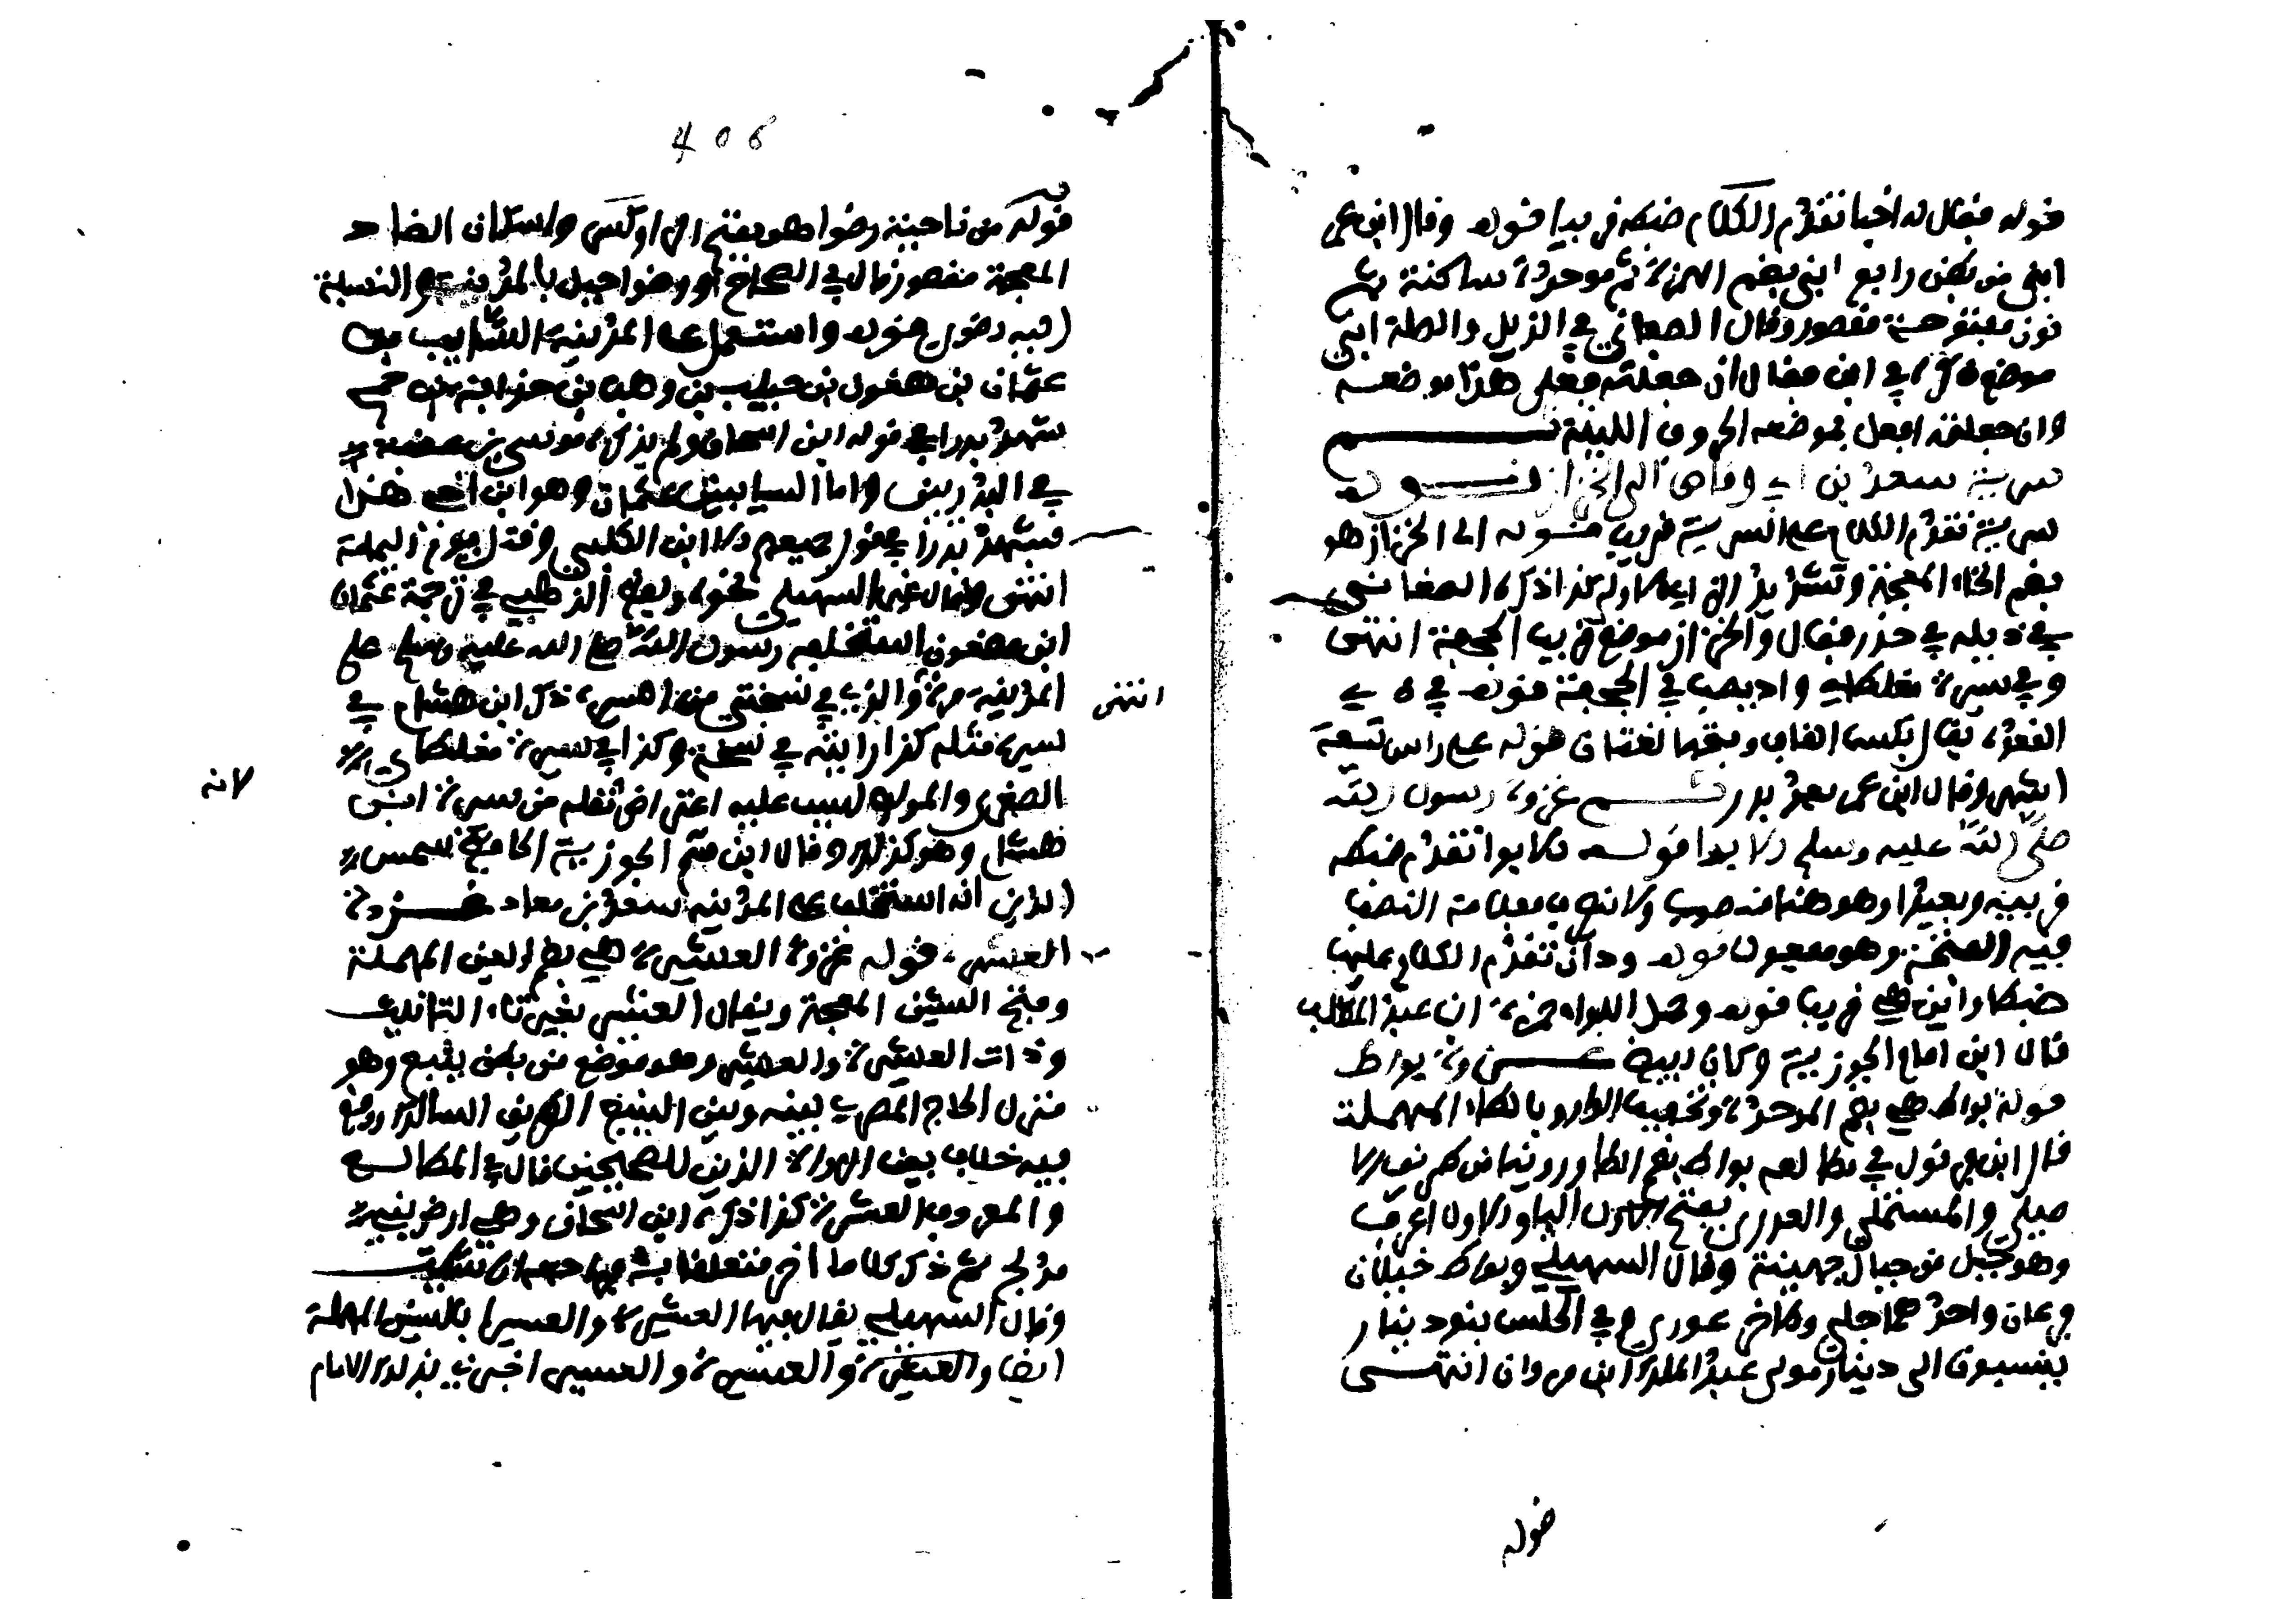 قوله فقال له احيا تقدم الكلام ضبطه في بدا قوله وقال ابن عمر
ابنى من بطن رابغ ابنى بضم الهمزة ثم موحدة ساكنة ثم
نون مفتوحة مقصور وقال الصغاني في الذيل والصلة ابنى
موضع ذكره في ابن فقال ان جعلته فعلى هذا موضعه
وان جعلته افعل فموضعه الحروف اللينة ثم
سرية سعد بن ابي وقاص الى الخزار قوله
سرية تقدم الكلام على السرية قريبا قوله الى الخزار هو
بفتح الخاء المعجمة وتشديد الزاي الاولى كذا ذكره الصغاني
في ذيله في خزر فقال والخزاز موضع قريب الجحفة انتهى
وفي سيرة مغلطاي واد يصب في الجحفة قوله في ذي
القعدة يقال بكسر القاف وفتحها لغتان قوله على راس تسعة
اشهر وقال ابن عمر بعد بدر ثم غزوة رسول الله
صلى الله عليه وسلم الابوا قوله الابوا تقدم ضبطه
قريبا وبعيدا وهو هنا منصوب ولانه مفعول منه النصب
فيه الفتحة وهو مفعول قوله ودان تقدم الكلام عليها
ضبطا واين هي قريبا قوله وحمل اللواء حمزة ابن عبد المطلب
قال ابن امام الجوزية وكان ابيض غزوة بواط
قوله بواط هي بضم الموحدة وتخفيف الواو وبالطاء المهملة
قال ابن قرقول في مطالعه بواط بضم الطا وروينا من طريق الا
صيلي والمستملي والعذري بفتح الباء والاول اعرف
وهو جبل من جبال جهينة وقال السهيلي وبواط جبلان
فرعان واحد هما جلسي والاخر غوري وفي الجلسي بنو دينار
ينسبون الى دينار مولى عبد الملك ابن مروان انتهى
قوله
406
قوله من ناحية رضوا هو بفتح الراء وكسر واسكان الضاد
المعجمة مقصور قال في الصحاح ورضوا جبل بالمدينة والنسبة
اليه رضوي قوله واستعمل على المدينة السايب بن
عثمان بن مظعون بن حبيب بن وهب بن حذافة بن جمح
شهد بدرا في قوله ابن اسحاق ولم يذكره موسى بن عقبة
في البدريين واما السايب بن عثمان وهو ابن اخي هذا
فشهد بدرا في قول جميعهم الا ابن الكلبي وقتل يوم اليمامة
انتهى وقال غير السهيلي نحوه وبعض الذهبي في ترجمة عثمان
ابن مظعون استخلفه رسول الله صلى الله عليه وسلم على
المدينة مرة والذي في نسختي من السيرة ذكر ابن هشام في
انتهى
سيرته مثله كذا رايته في نسخة وكذا في سيرة مغلطاي
الصغرى والمولف ليس عليه اعتراض نقله من سيرة ابن
لانه
هشام وهو كذلك وقال ابن قيم الجوزية الحافظ شمس
الدين انه استخلف على المدينة سعد بن معاذ غزوة
العشيرة قوله غزوة العشيرة هي بضم العين المهملة
وفتح الشين المعجمة ويقال العشير بغير تاء التانيث
وذات العشيرة والعشير وهو موضع من بطن ينبع وهو
منزل الحاج المصري بينه وبين الينبع الطريق السالك ووقع
فيه خلاف بين الرواة الذين للصحيحين قال في المطالع
والمعروف العشيرة كذا ذكره ابن اسحاق وهي ارض بني
مدلج ثم ذكر كلاما اخر متعلقا
وقال السهيلي يقال فيها العشيرة والعسيرا بالسين المهملة
ايضا والعشيرة والعسيرة والعسير اخبرني بذلك الامام